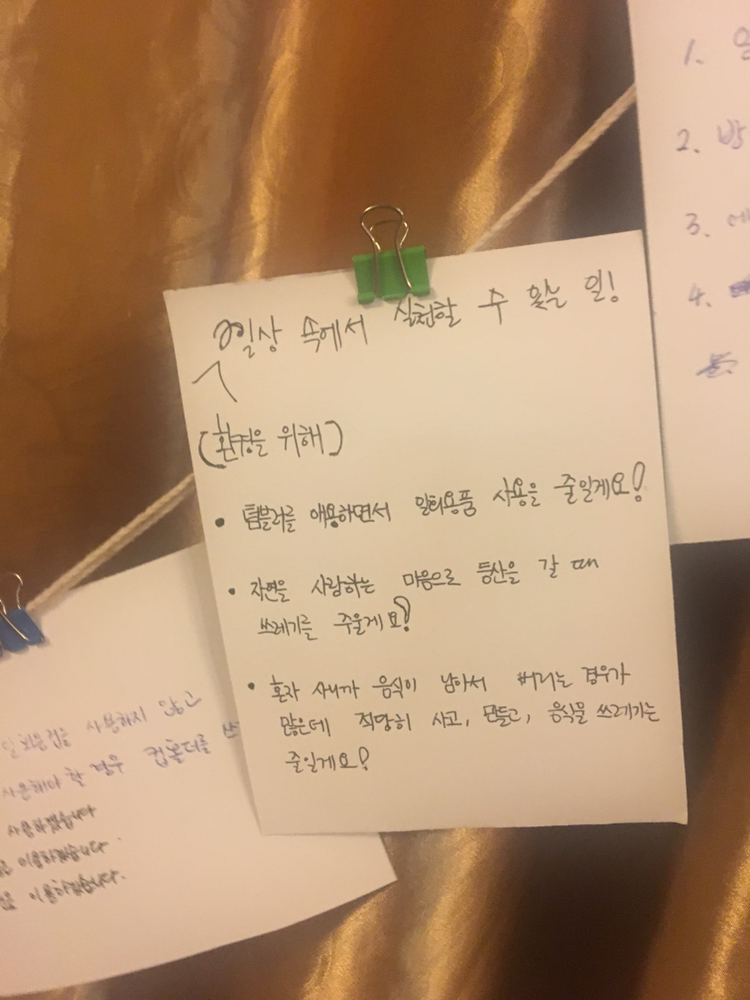 일상 속에서 실천할 수 있는 일!
(환경을 위해)
• 텀블러를 애용하면서 일회용품 사용을 줄일게요!
• 자연을 사랑하는 마음으로 등산을 갈 때
쓰레기를 주울게요!
• 혼자 사니까 음식이 남아서 버리는 경우가
많은데 적당히 사고, 만들고, 음식물 쓰레기는
줄일게요!
1.
2. 방
3.
4.
일회용컵을 사용하지 않고
사용해야 할 경우 컵홀더를
사용하겠습니다
이용하겠습니다.
이용하겠습니다.